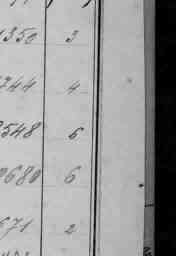 1350 3
744 4
3548 6
0680 6
671 2